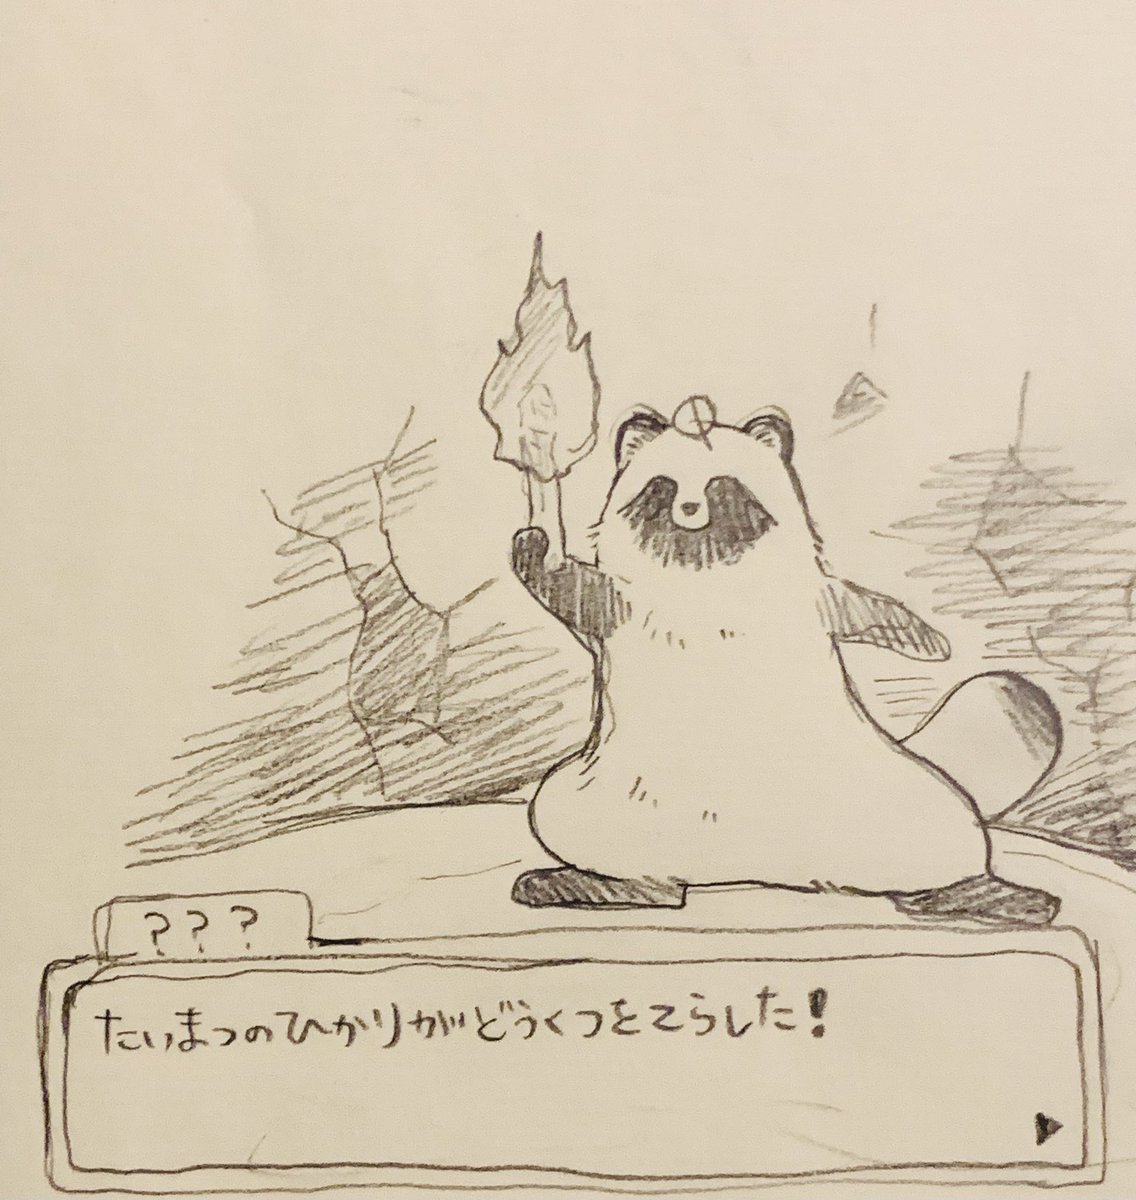 ???
たいまつのひかりがどうくつをてらした!